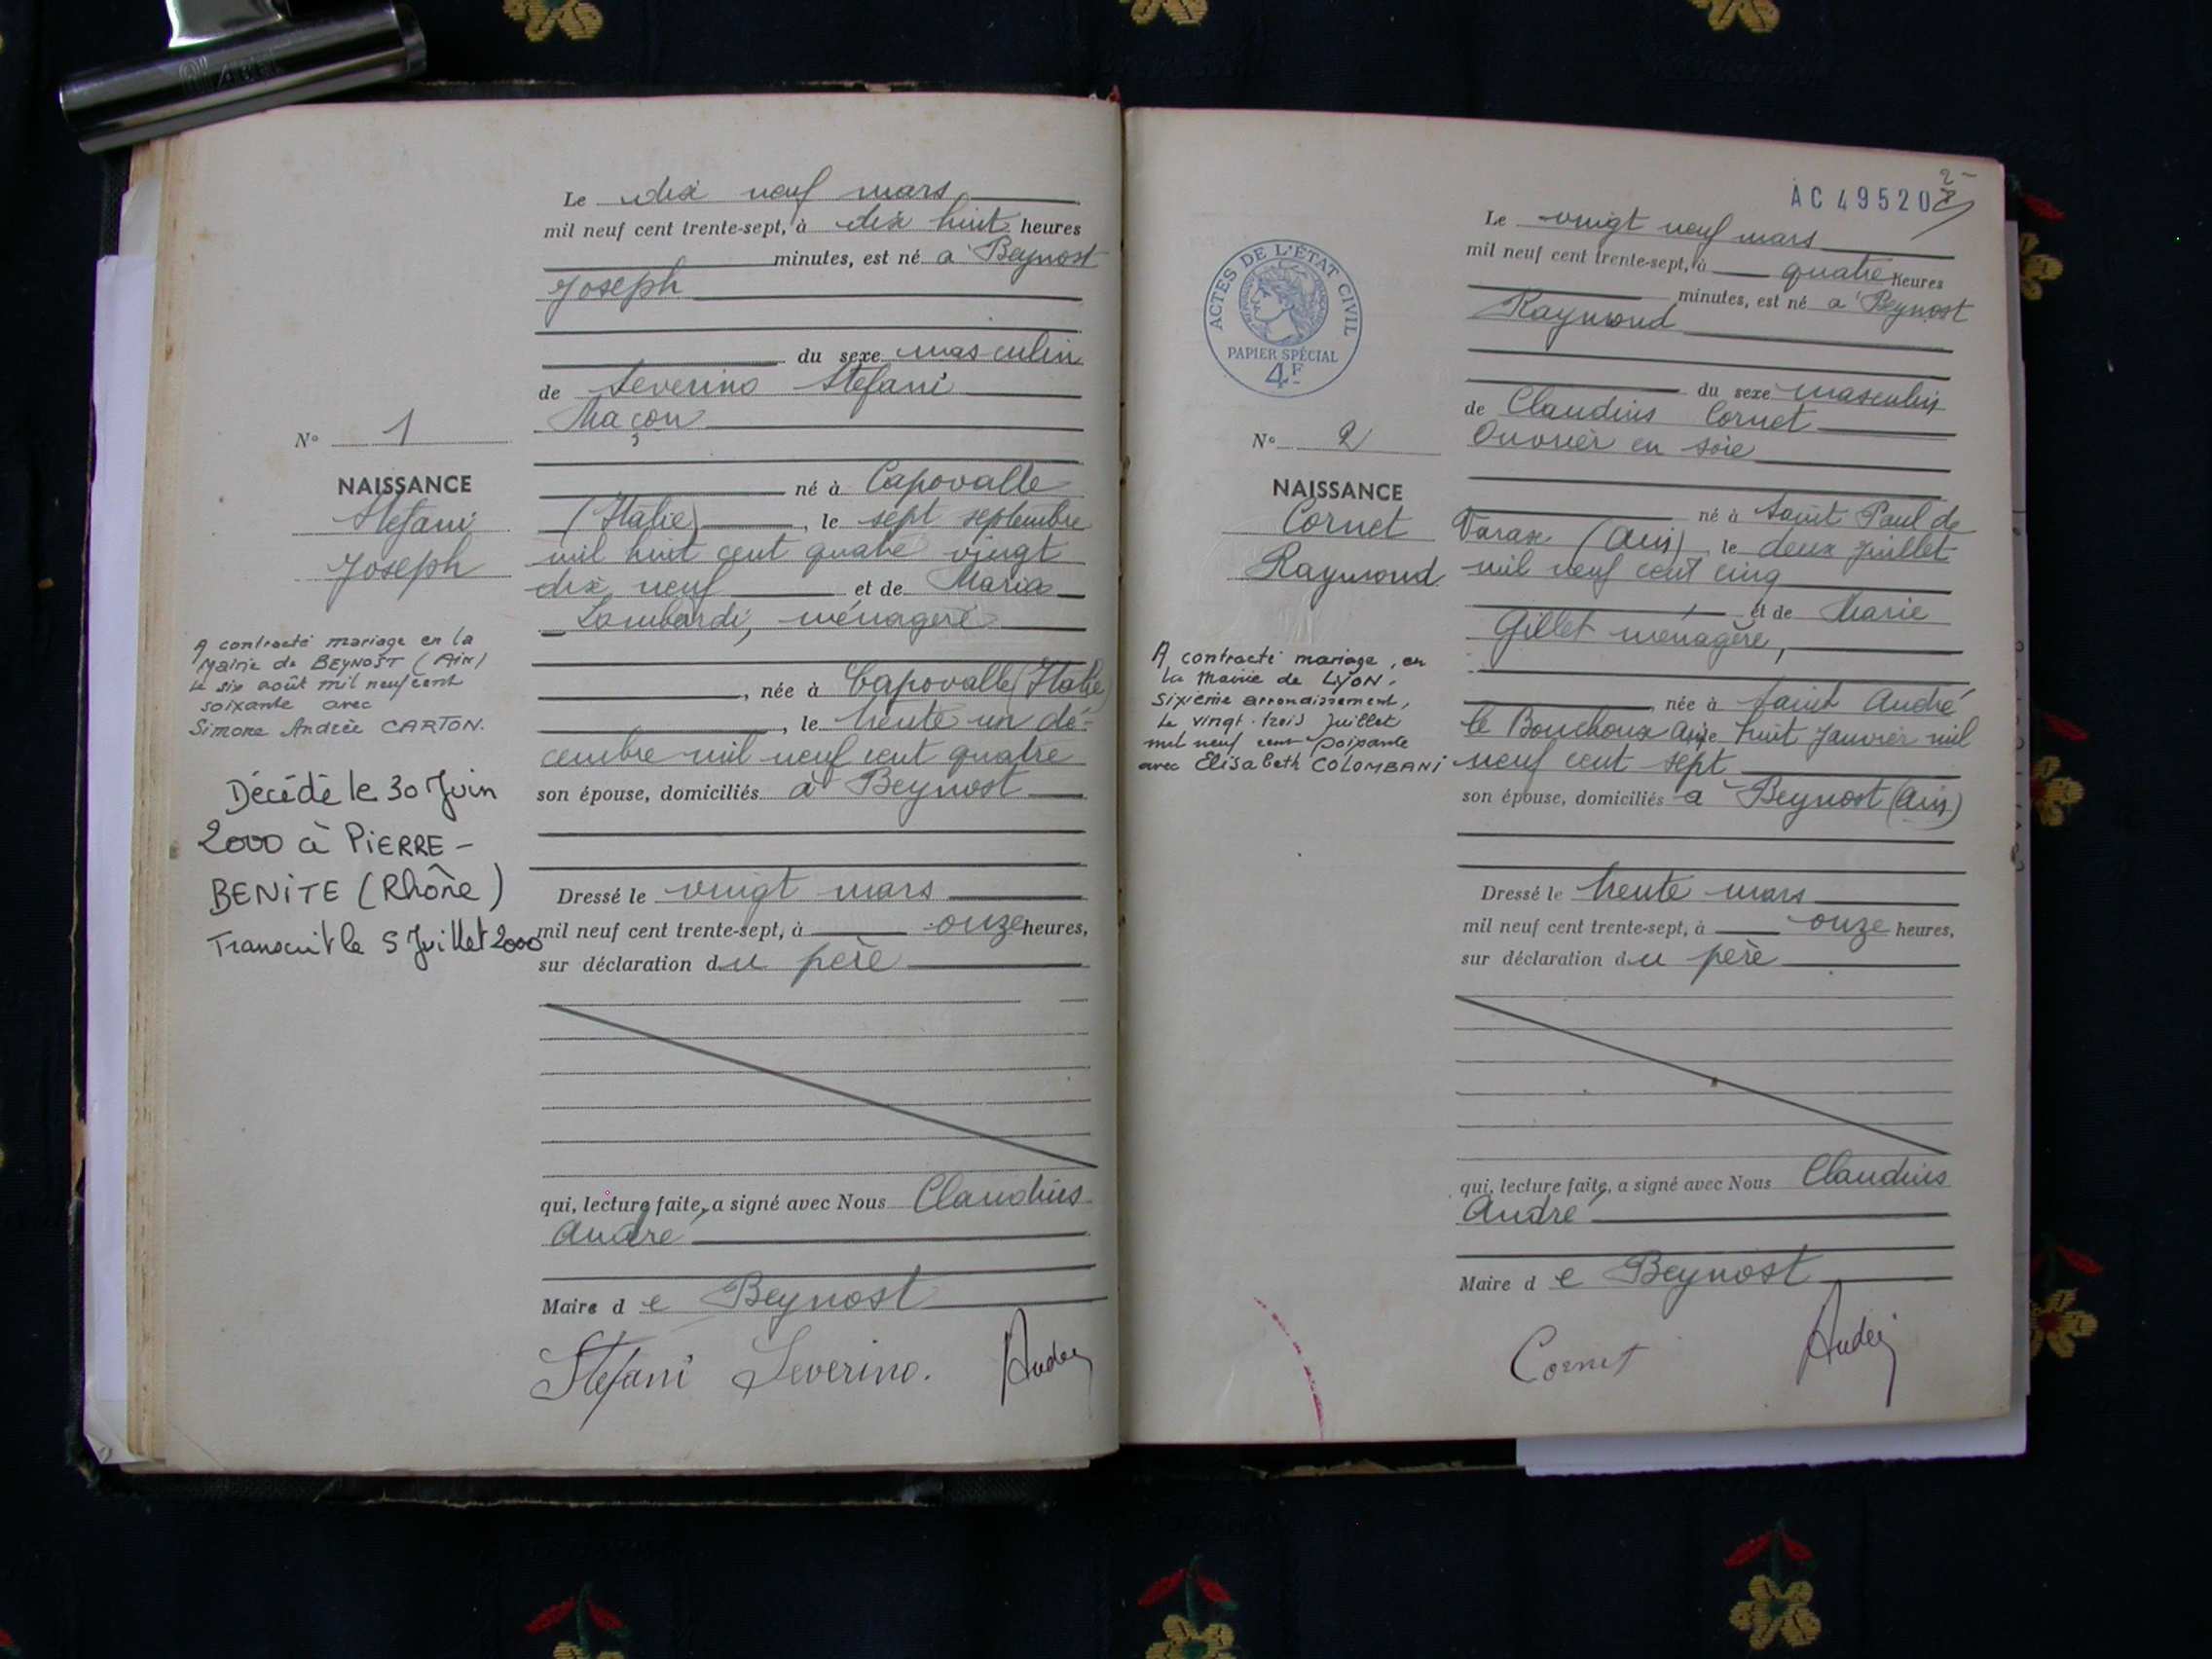 Le dix neuf mars
mil neuf cent trente-sept, à dix huit heures
minutes, est né à Beynost
Joseph
du sexe masculin
de Severino Stefani
Maçon
N° 1
né à Capovalle
NAISSANCE
Stefani
Joseph
(Italie), le sept septembre
mil huit cent quatre vingt
dix neuf et de Maria
Lombardi, ménagère
A contracté mariage en la
Mairie de BEYNOST (Ain)
le six août mil neuf cent
soixante avec
Simone Andrée CARTON.
, née à Capovalle (Italie)
, le trente un dé-
cembre mil neuf cent quatre
son épouse, domiciliés à Beynost
Décédé le 30 Juin
2000 à PIERRE-
BENITE (Rhône)
Transcrit le 5 Juillet 2000
Dressé le vingt mars
mil neuf cent trente-sept, à onze heures,
sur déclaration du père
qui, lecture faite, a signé avec Nous Claudius
André
Maire de Beynost
Stefani Severino.
AC 49520
2
Le vingt neuf mars
mil neuf cent trente-sept, à quatre heures
minutes, est né à Beynost
Raymond
ACTES DE L'ÉTAT CIVIL
PAPIER SPÉCIAL
4F
du sexe masculin
de Claudius Cornet
Ouvrier en soie
N° 2
NAISSANCE
Cornet
Raymond
né à Saint Paul de
Varax (Ain), le deux Juillet
mil neuf cent cinq
et de Marie
Gillet ménagère,
A contracté mariage, en
la Mairie de LYON.
Sixième arrondissement,
le vingt-trois Juillet
mil neuf cent soixante
avec Elisabeth COLOMBANI
née à Saint André
le Bouchoux Ain, le huit Janvier mil
neuf cent sept
son épouse, domiciliés à Beynost (Ain)
Dressé le trente mars
mil neuf cent trente-sept, à onze heures,
sur déclaration du père
qui, lecture faite, a signé avec Nous Claudius
André
Maire de Beynost
Cornet